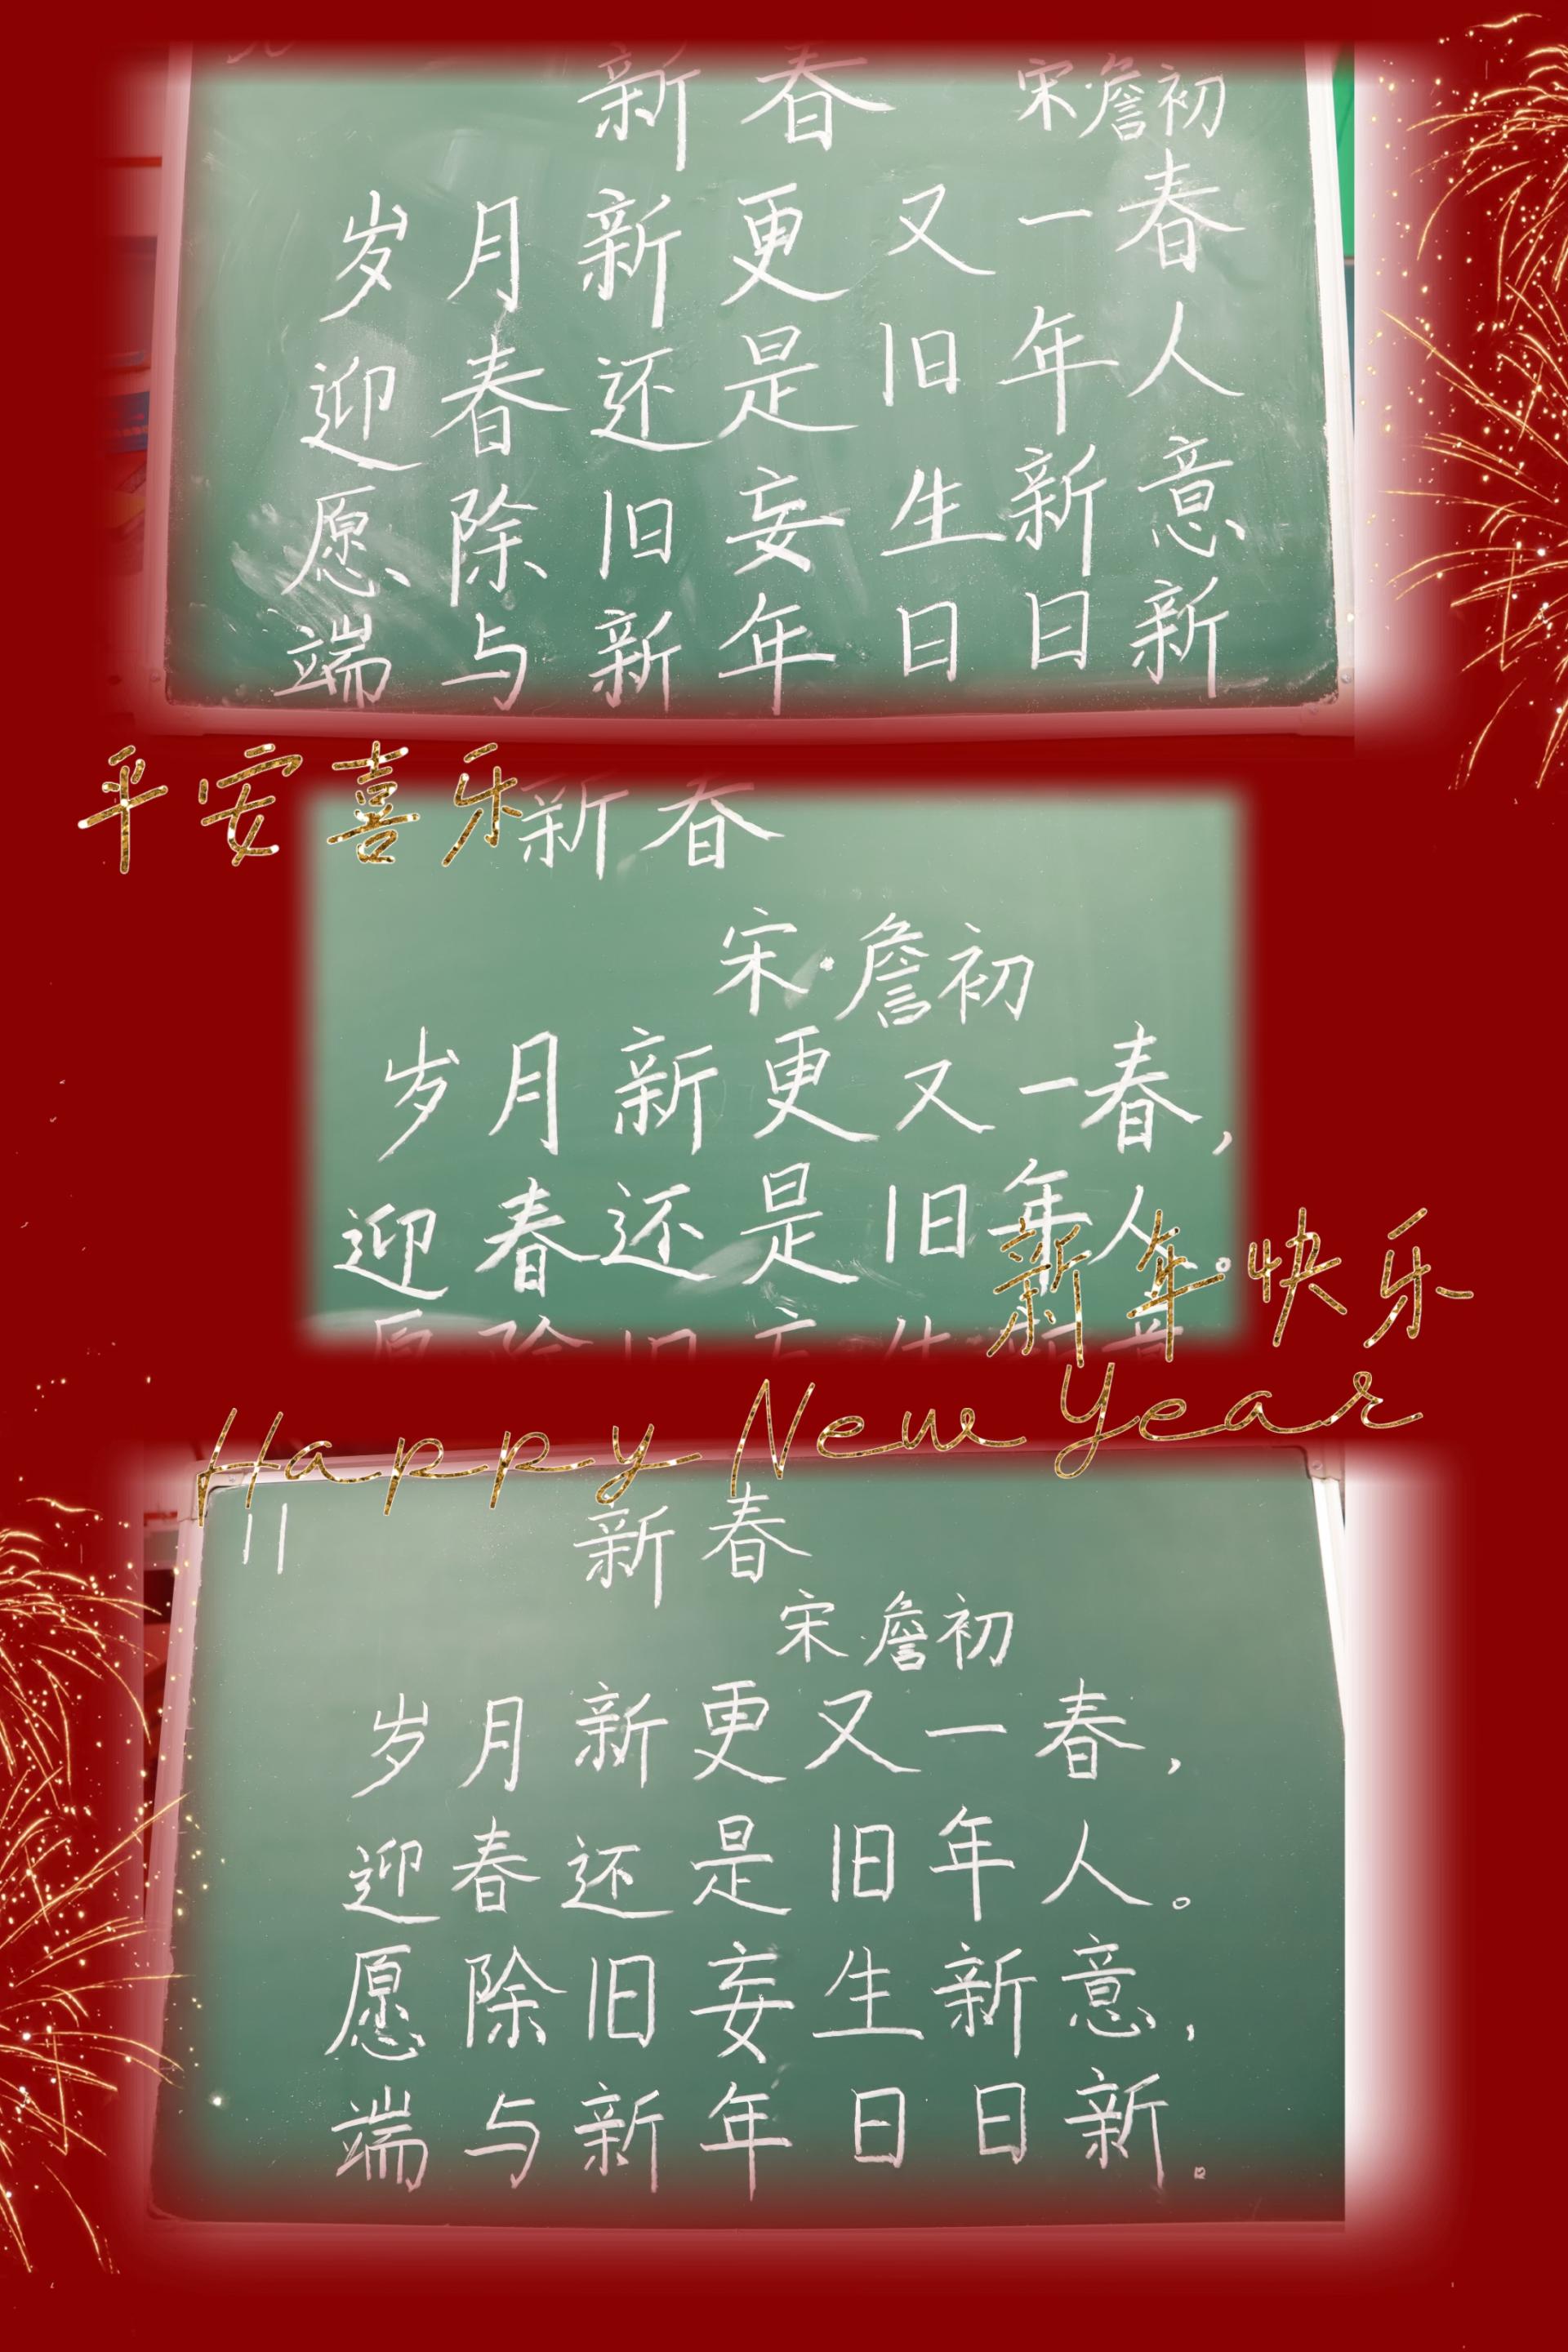 新春 宋·詹初
岁月新更又一春
迎春还是旧年人
愿除旧妄生新意
端与新年日日新
平安喜乐
新春
宋·詹初
岁月新更又一春，
迎春还是旧年人。
愿除旧妄生新意
新年快乐
Happy New Year
新春
宋·詹初
岁月新更又一春，
迎春还是旧年人。
愿除旧妄生新意，
端与新年日日新。